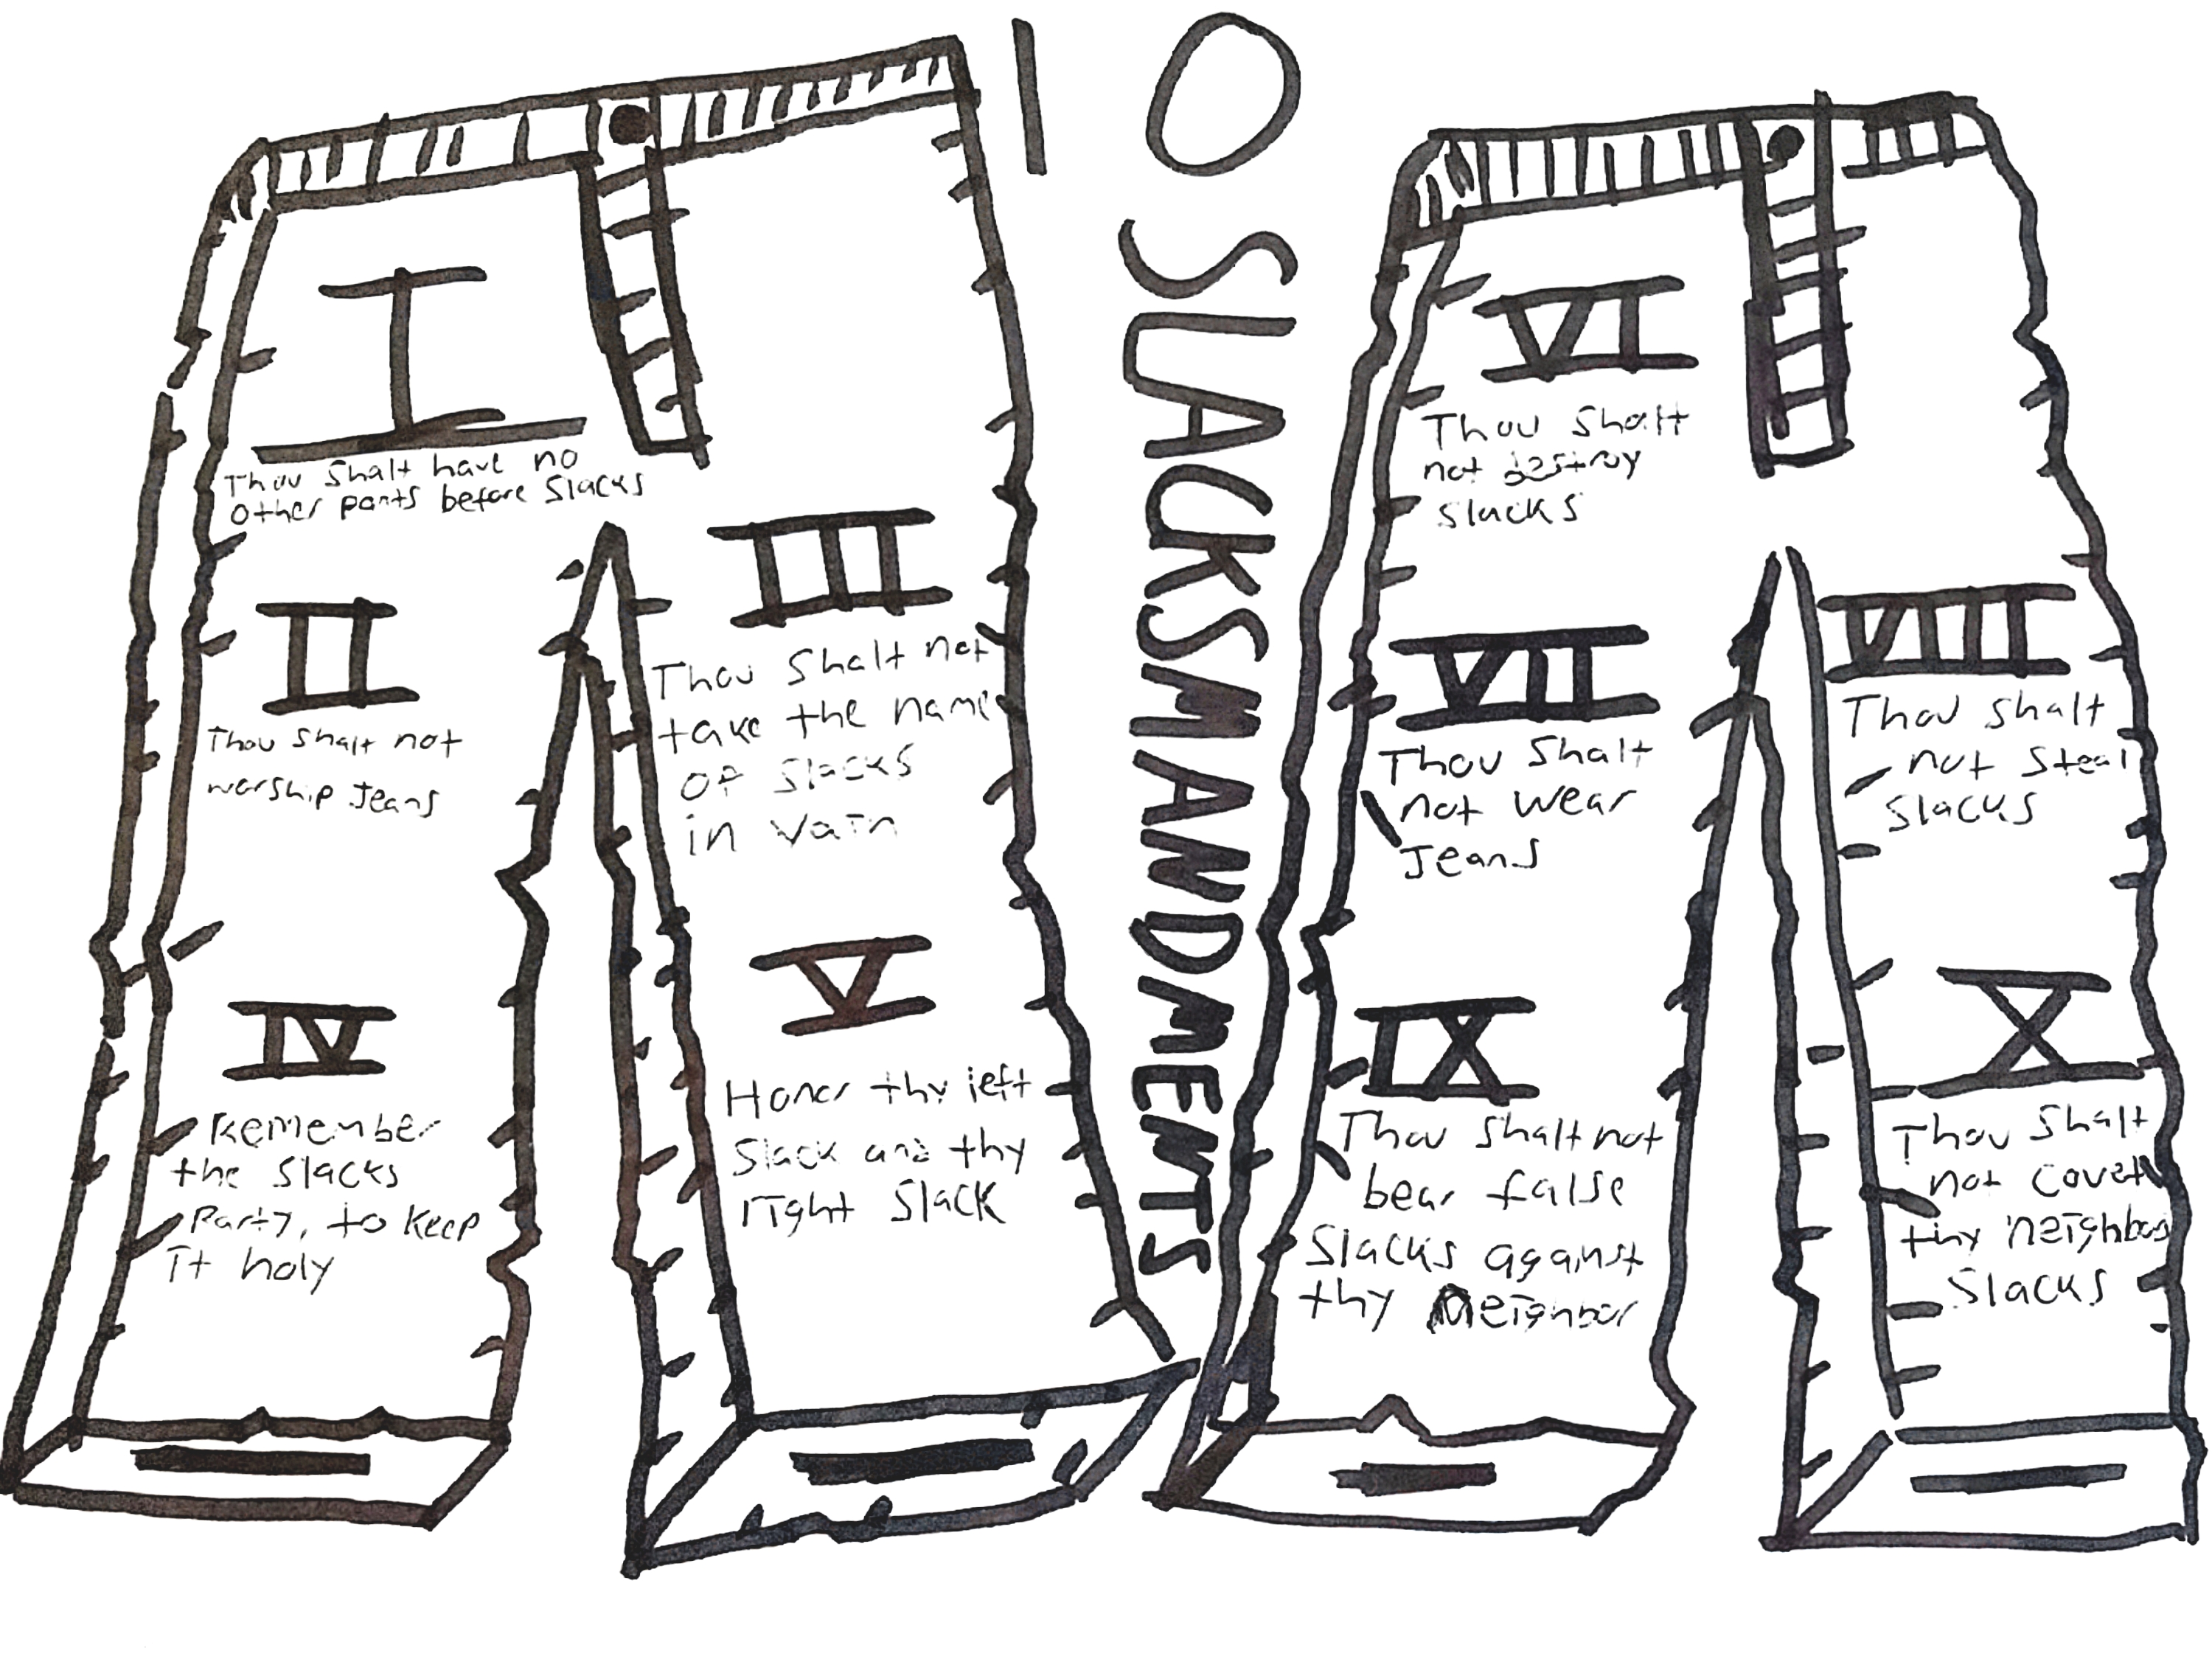 10 SLACKSMANDMENTS
I
Thou Shalt have no
other pants before Slacks
II
Thou Shalt not
worship Jeans
III
Thou Shalt not
take the name
of Slacks
in vain
IV
Remember
the Slacks
Party, to keep
it holy
V
Honor thy left
Slack and thy
right Slack
VI
Thou Shalt
not destroy
Slacks
VII
Thou Shalt
not wear
Jeans
VIII
Thou Shalt
not Steal
Slacks
IX
Thou Shalt not
bear false
Slacks aganst
thy Neighbor
X
Thou Shalt
not covet
thy neighbors
Slacks